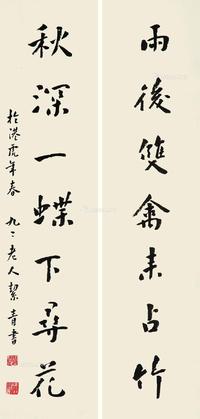 雨後雙禽來占竹
秋深一蝶下尋花
於港虎年春 九二老人絜青書